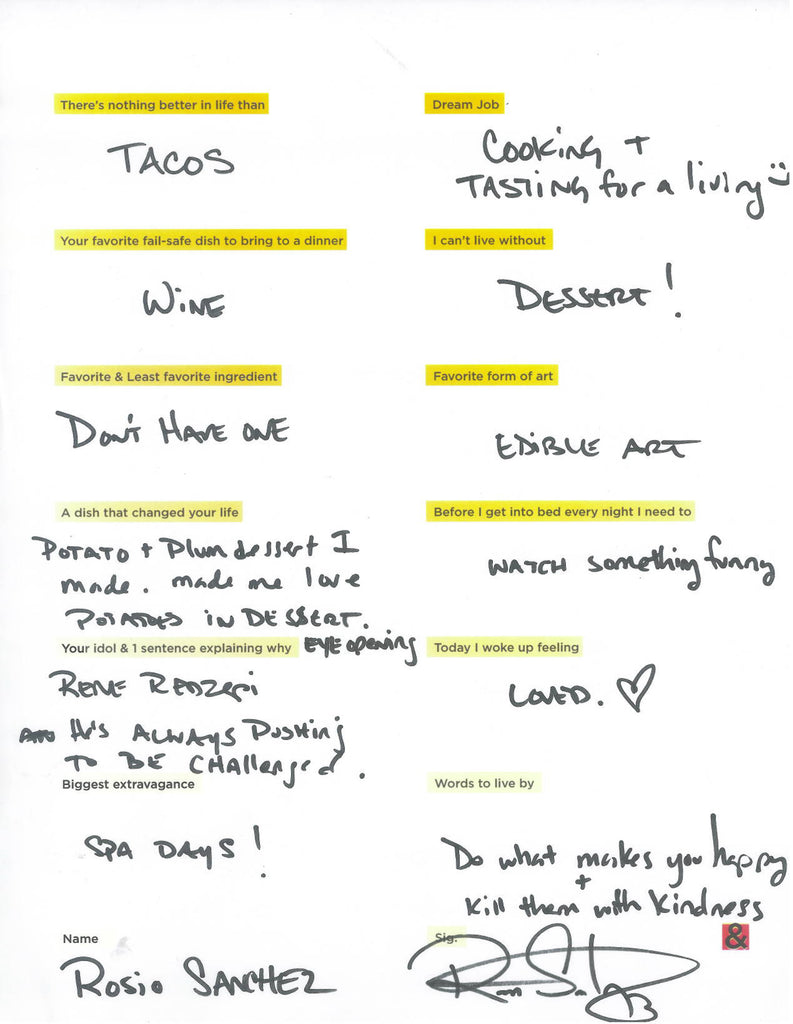 There's nothing better in life than
TACOS
Dream Job
COOKiNG +
TASTiNG for a living
Your favorite fail-safe dish to bring to a dinner
WiNE
I can't live without
DESSERT!
Favorite & Least favorite ingredient
DON'T HAVE ONE
Favorite form of art
EDiBLE ART
A dish that changed your life
POTATO + Plum dessert I
made. made me love
POTATOES iN DESSERT.
EYE opening
Before I get into bed every night I need to
WATCH something funny
Your idol & 1 sentence explaining why
RENE REDZEPi
He's ALWAYS PUSHiNG
TO BE CHAllenged.
Today I woke up feeling
LOVED.
Biggest extravagance
SPA DAYS!
Words to live by
Do what makes you happy
+
kill them with kindness
Name
Rosio SANCHEZ
Sig.
&